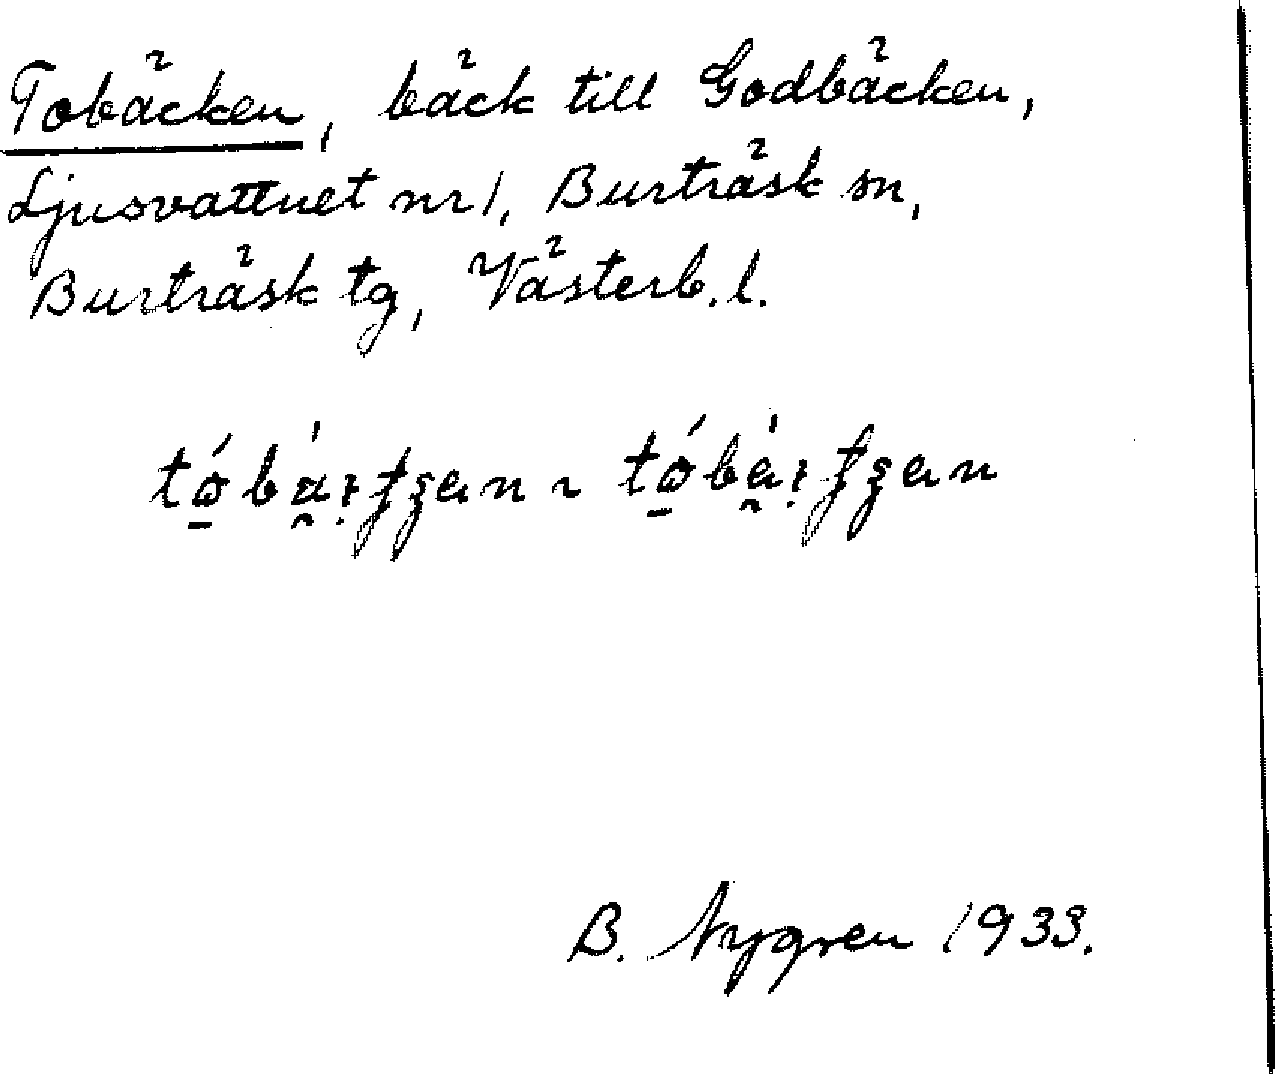 Tobäcken, bäck till Godbäcken,
Ljusvattnet nr 1, Burträsk sn,
Burträsk tg, Västerb. l.
B. Nygren 1933.